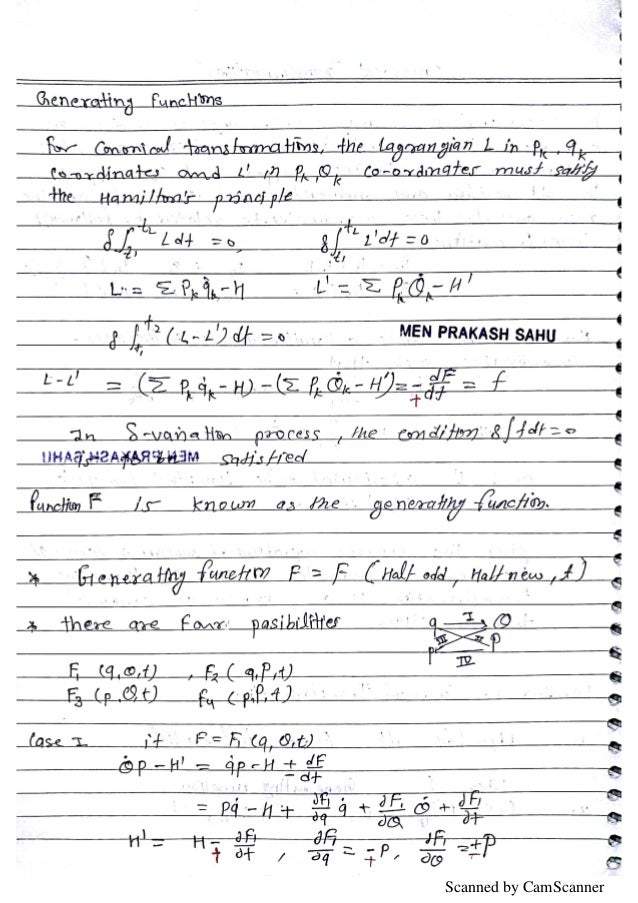 Generating Functions
for Canonical transformations, the lagrangian L in Pk, qk
co-ordinates and L' in Pk, Qk co-ordinates must satisfy
the Hamilton's principle
δ∫t1^t2 L dt = 0, δ∫t1^t2 L'dt = 0
L = Σ Pk q̇k - H L' = Σ Pk Q̇k - H'
δ∫t1^t2 (L - L') dt = 0 MEN PRAKASH SAHU
L - L' = (Σ Pk q̇k - H) - (Σ Pk Q̇k - H') = ∓ dF/dt = f
In δ-variation process, the condition δ∫fdt = 0
MEN PRAKASH SAHU satisfied
Function F is known as the generating function.
* Generating function F = F (Half odd, Half new, t)
* there are four pasibilities q I Q
III II
p IV P
F1 (q, Q, t) , F2 (q, P, t)
F3 (p, Q, t) F4 (p, P, t)
Case I if F = F1 (q, Q, t)
Q̇P - H' = q̇p - H ± dF/dt
= pq̇ - H + ∂F1/∂q q̇ + ∂F1/∂Q Q̇ + ∂F1/∂t
H' = H ∓ ∂F1/∂t , ∂F1/∂q = ∓P, ∂F1/∂Q = ±P
Scanned by CamScanner